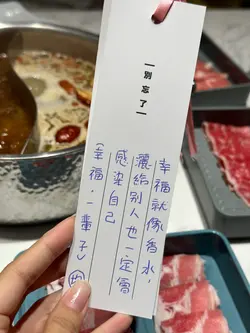 別忘了
幸福就像香水，
灑給別人也一定會
感染自己
（幸福．一輩子）